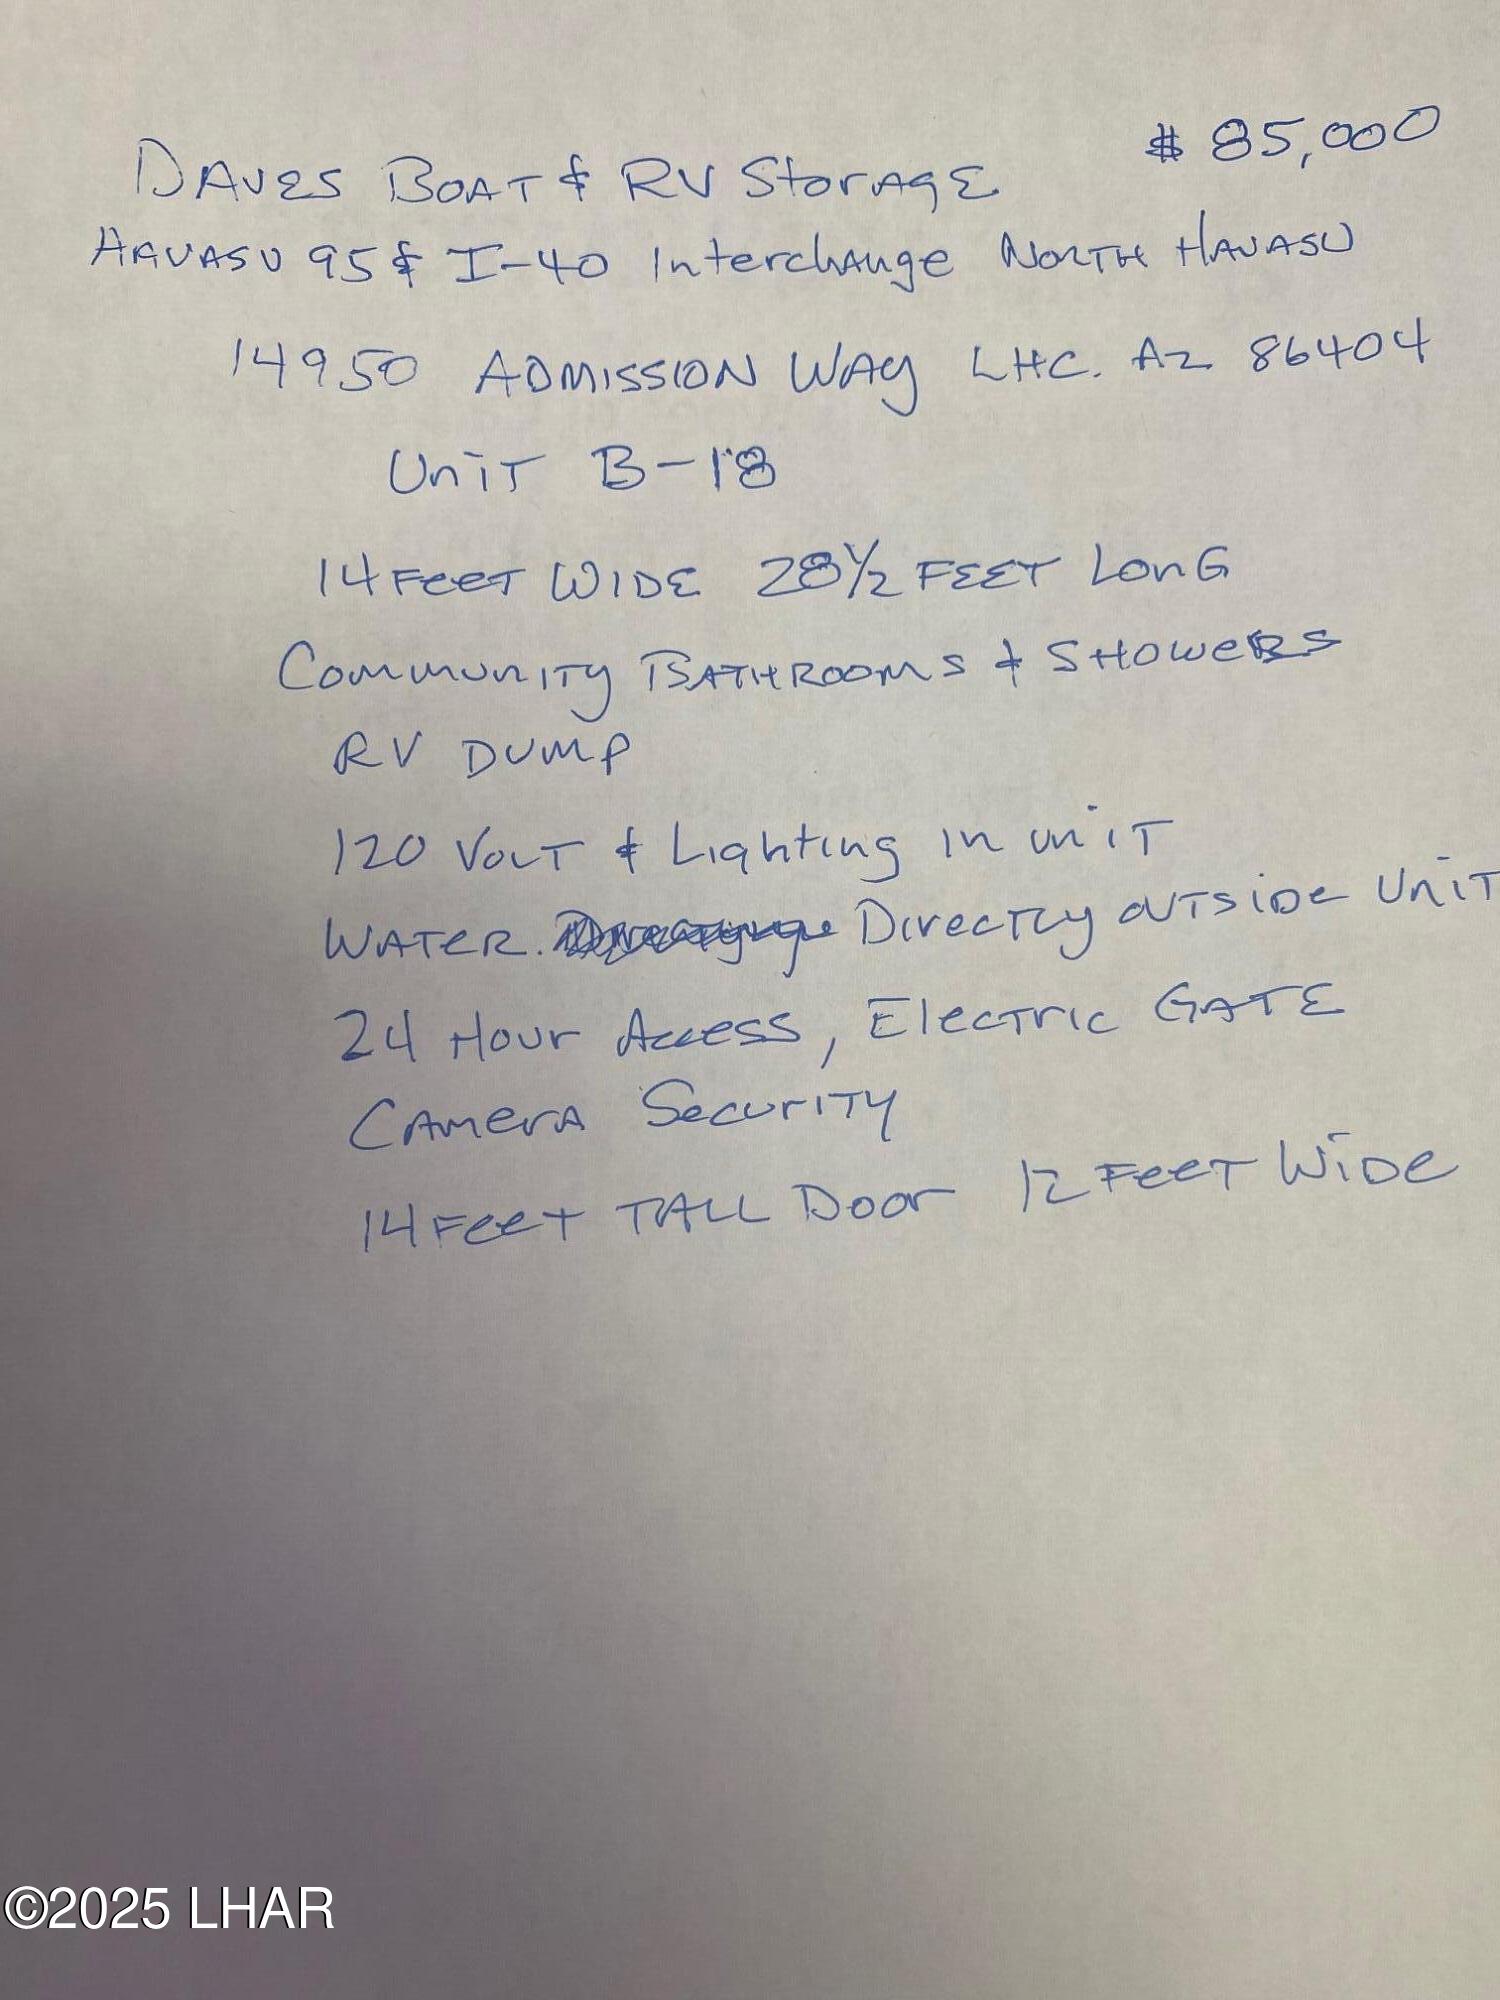 $ 85,000
DAVES BOAT & RV Storage
HAVASU 95 & I-40 Interchange NORTH HAVASU
14950 ADMISSION WAY LHC. AZ 86404
UniT B-18
14 FeeT WIDE 28 1/2 FEET LONG
Community BATHROOMS & SHOWERS
RV DUMP
120 VOLT & Lighting in uniT
WATER. Directly OUTSIDE UniT
24 Hour Access, Electric GATE
CAMERA Security
14 FeeT TALL Door 12 FeeT WiDe
©2025 LHAR